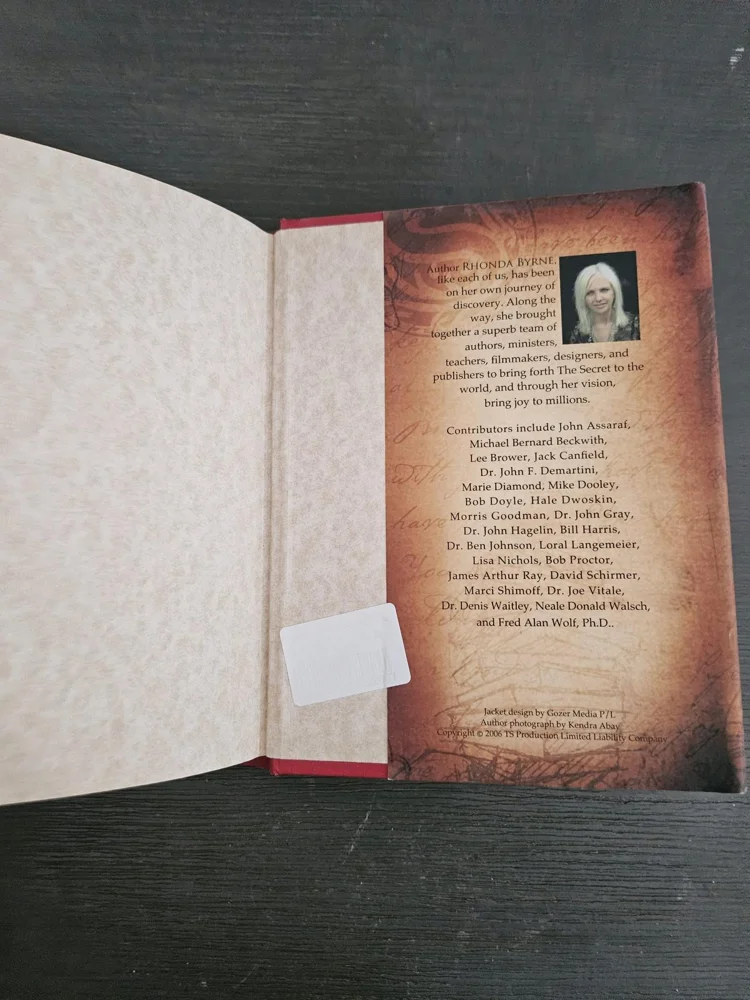 Author RHONDA BYRNE,
like each of us, has been
on her own journey of
discovery. Along the
way, she brought
together a superb team of
authors, ministers,
teachers, filmmakers, designers, and
publishers to bring forth The Secret to the
world, and through her vision,
bring joy to millions.
Contributors include John Assaraf,
Michael Bernard Beckwith,
Lee Brower, Jack Canfield,
Dr. John F. Demartini,
Marie Diamond, Mike Dooley,
Bob Doyle, Hale Dwoskin,
Morris Goodman, Dr. John Gray,
Dr. John Hagelin, Bill Harris,
Dr. Ben Johnson, Loral Langemeier,
Lisa Nichols, Bob Proctor,
James Arthur Ray, David Schirmer,
Marci Shimoff, Dr. Joe Vitale,
Dr. Denis Waitley, Neale Donald Walsch,
and Fred Alan Wolf, Ph.D..
Jacket design by Gozer Media P/L
Author photograph by Kendra Abay
Copyright © 2006 TS Production Limited Liability Company